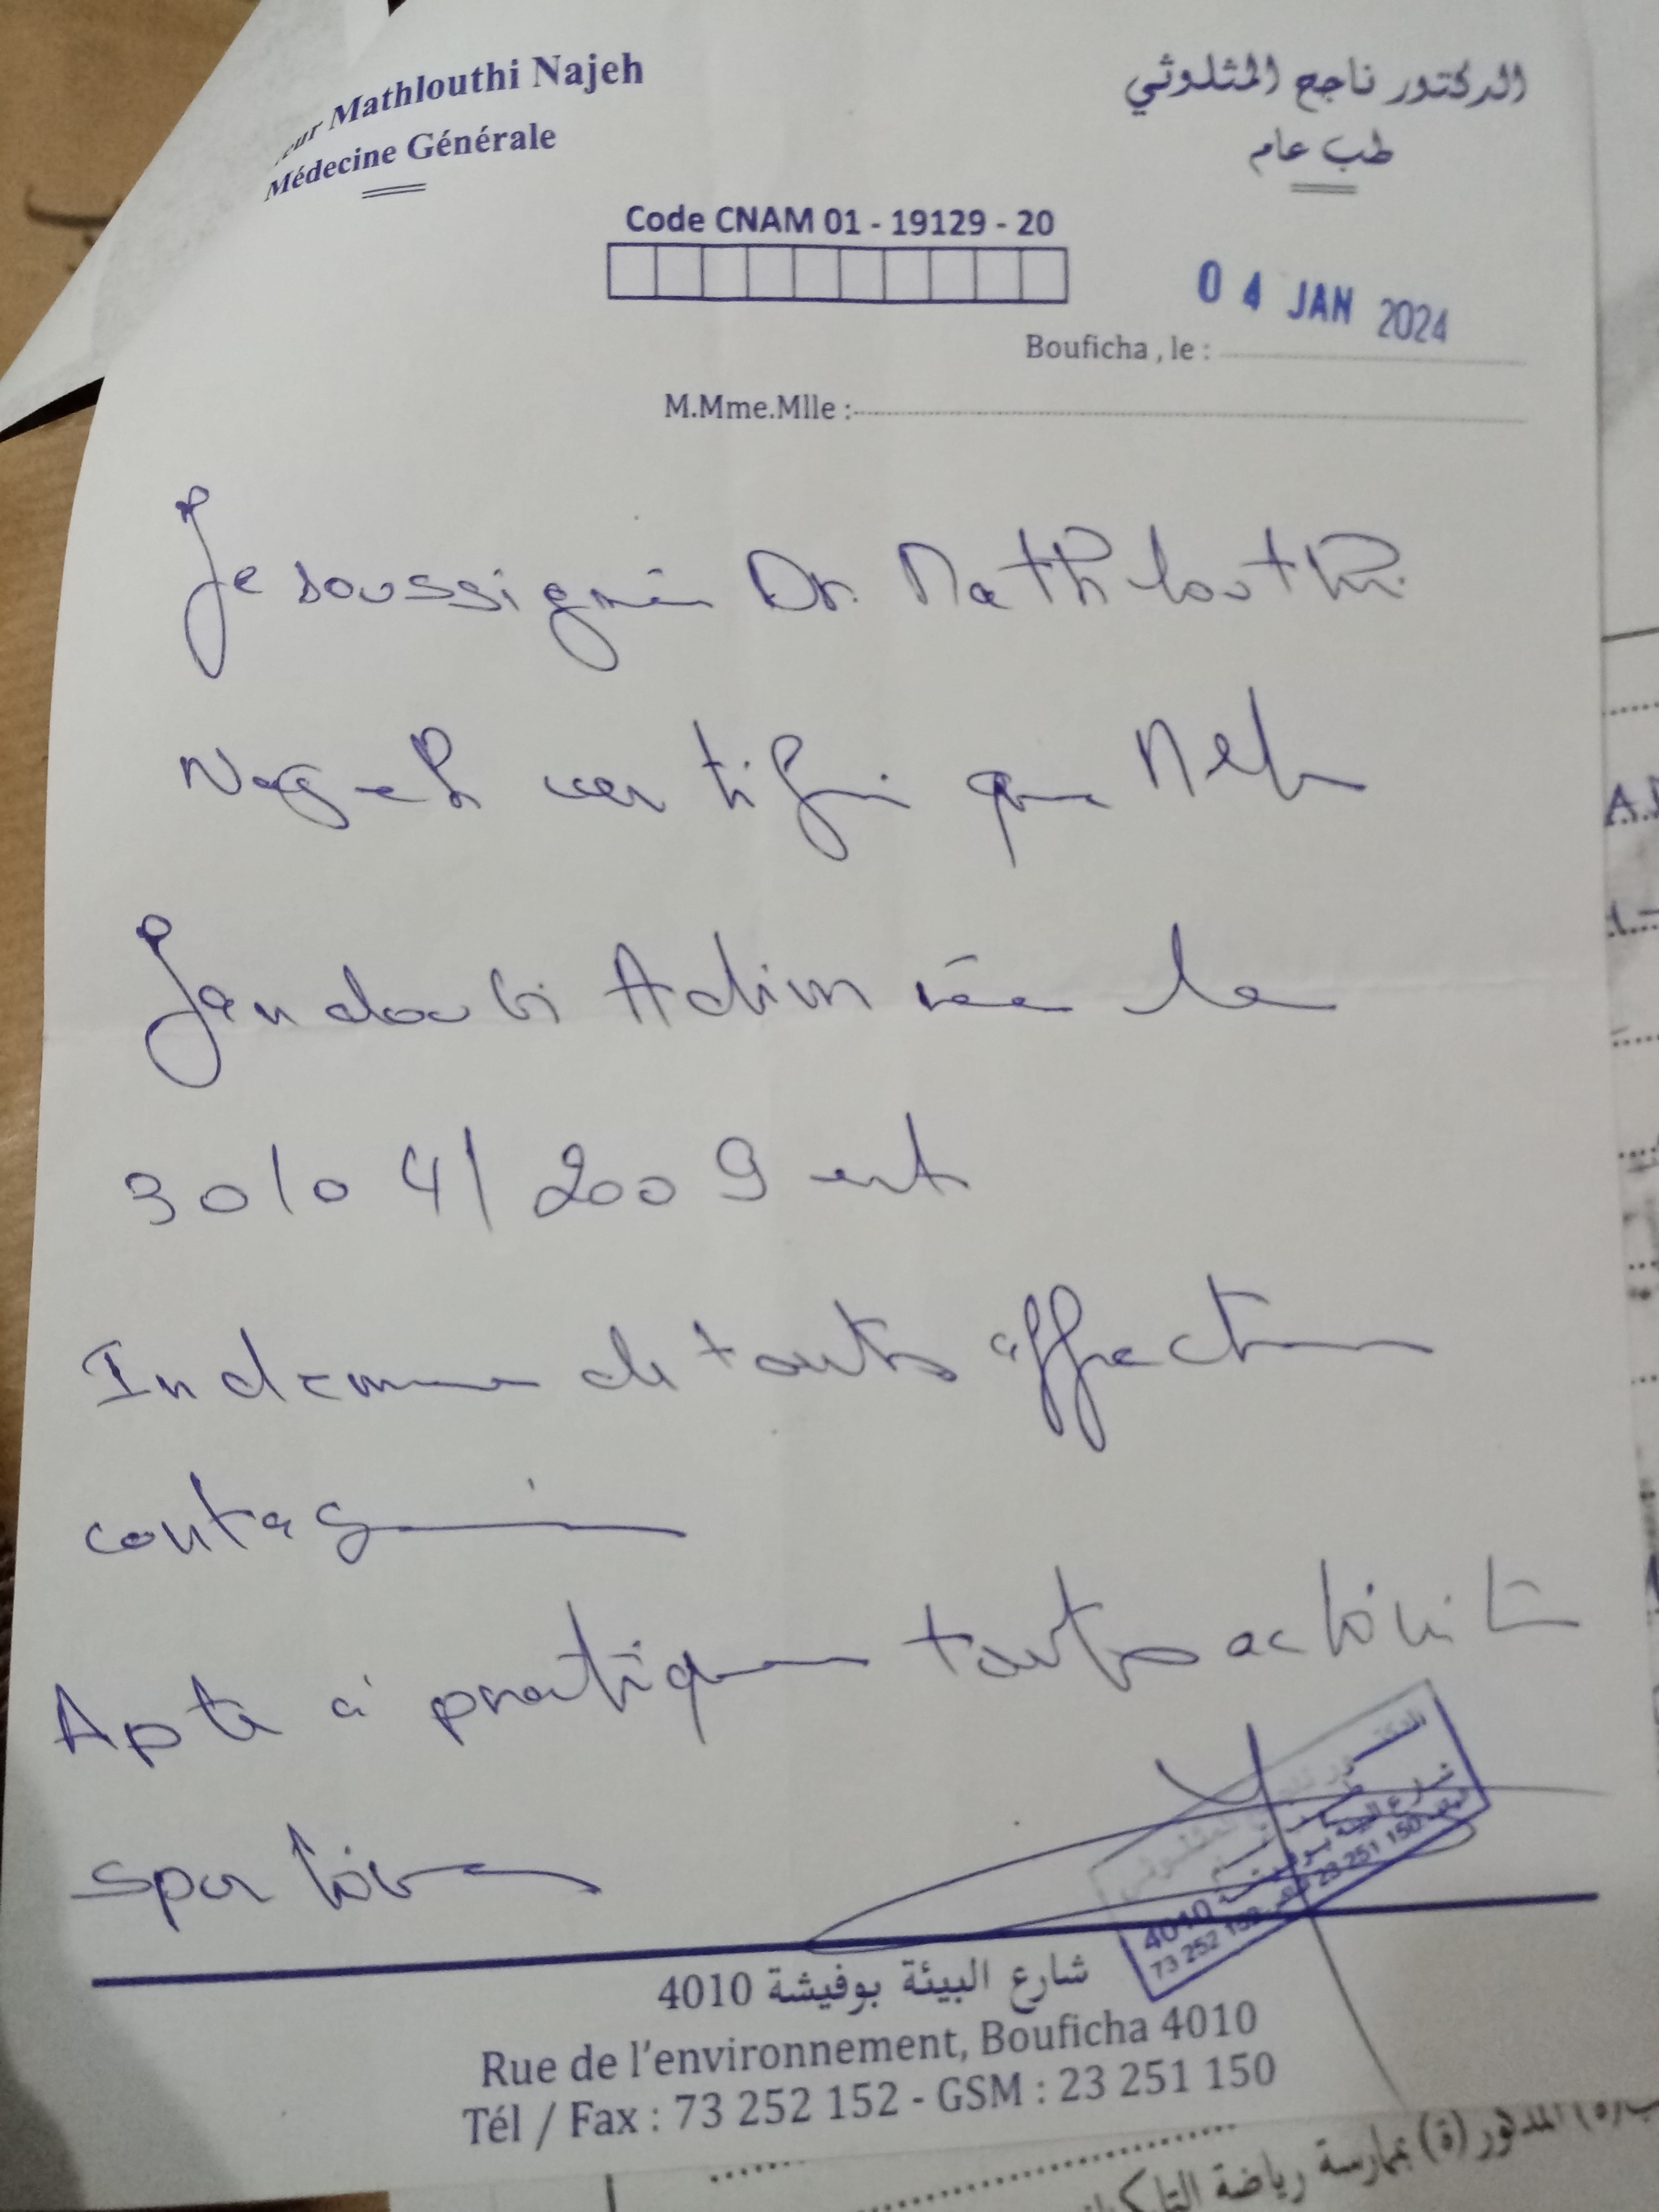 Mathlouthi Najeh
Médecine Générale
الدكتور ناجح المثلوثي
طب عام
Code CNAM 01 - 19129 - 20
04 JAN 2024
Bouficha , le :
M.Mme.Mlle :
Je soussigné Dr. Mathlouthi
Najeh certifie que Melle
Jandoubi née le
30/04/2009 est
Indemne de toutes affection
contagieuse
Apte à pratiquer toutes activité
sportive
شارع البيئة بوفيشة 4010
Rue de l'environnement, Bouficha 4010
Tél / Fax : 73 252 152 - GSM : 23 251 150
شارع البيئة بوفيشة 4010
73 252 152 23 251 150
المذكور (ة) بممارسة رياضة